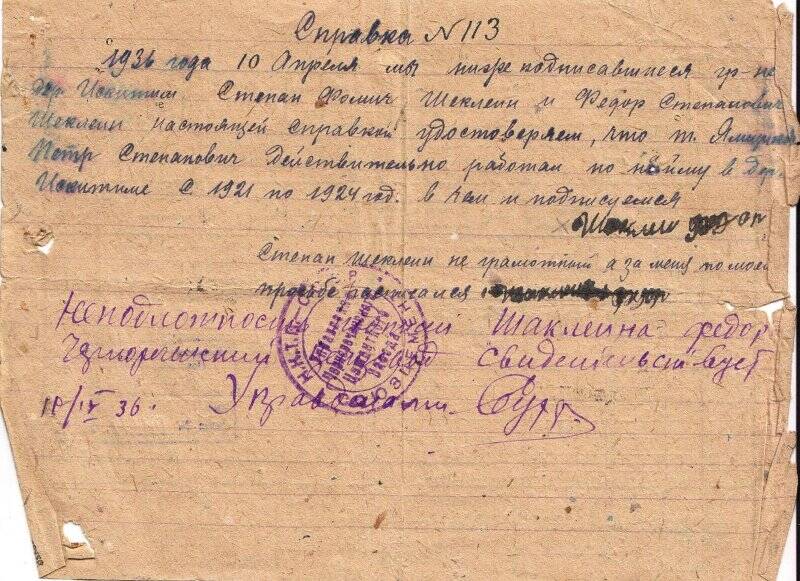 Справка N 113
1936 года 10 Апреля мы ниже подписавшиеся гр-не
дер. Искитим Степан Фомич Шеклеин и Федор Степанович
Шеклеин настоящей справкой удостоверяем, что т.
Петр Степанович действительно работал по найму в дер.
Искитиме с 1921 по 1924 год. в чем и подписуемся
Шаклеин
Степан Шеклеин не грамотный а за меня по моей
просьбе расписался
Неподложность Шаклеина Федор
Чернореченский свидетельствует
10/IV 36. Управделами